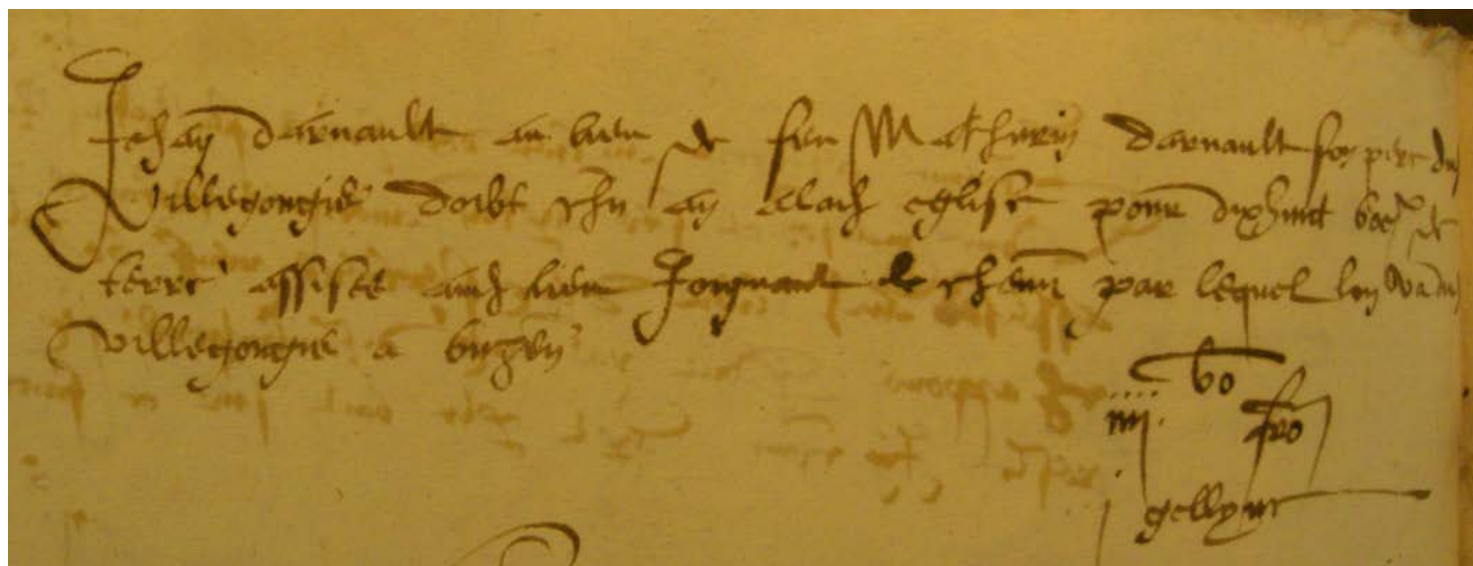 Jehan darnault au lieu de feu Mathurin darnault son pere du
Villegongis doibt chun an a lad eglise pour dixhuit boes de
terre assises aud lieu Joignant le chemin par lequel lon va du
Villegongis a
bo
iiii
j gellyne